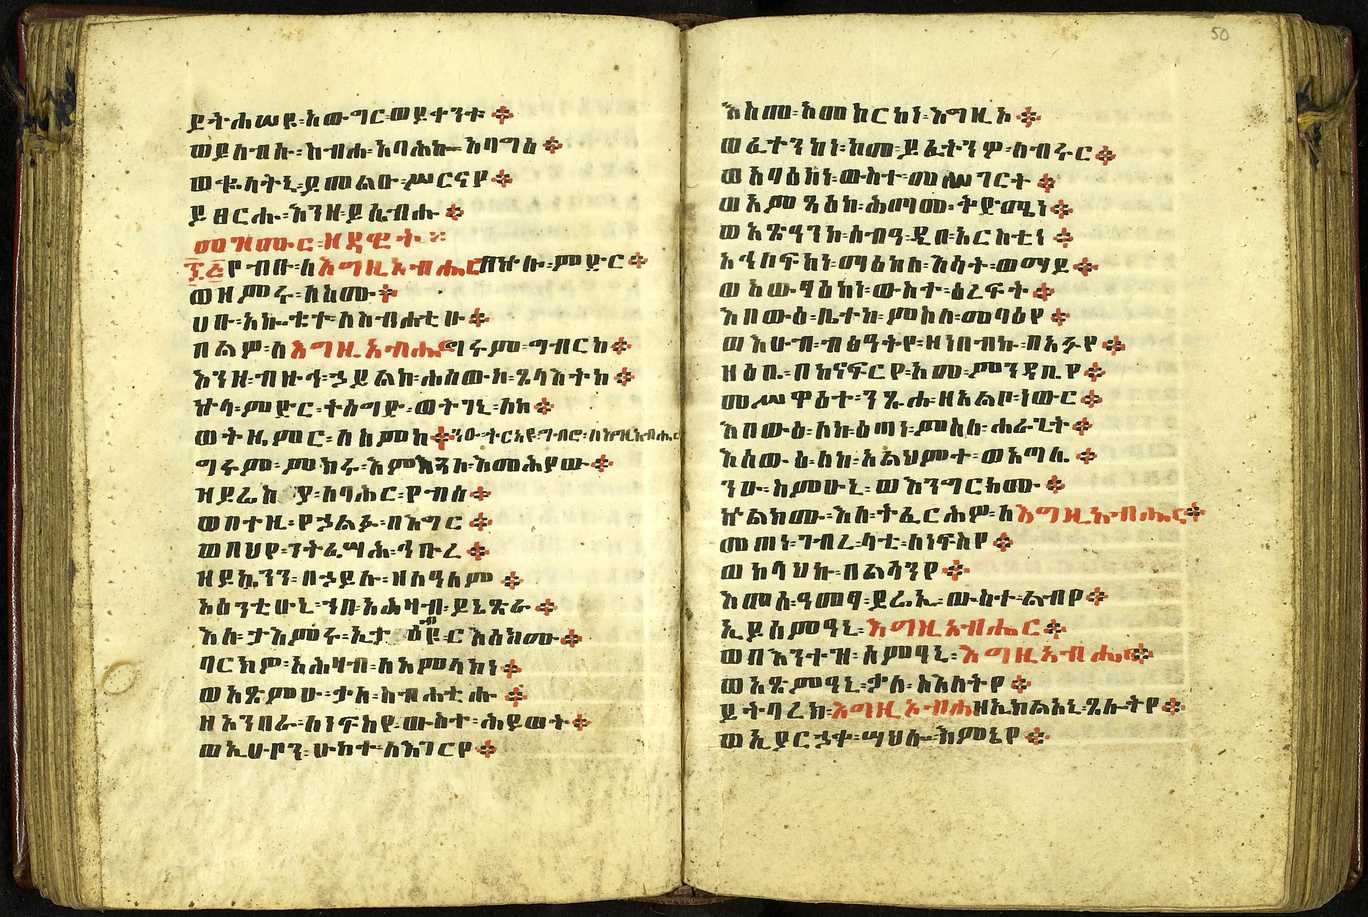 ይትሐሠዩ፡አውግር፡ወይቀንቱ
ወይለብሱ፡አባግዕ
ወቈላትኒ፡ይመልኡ፡ሥርናየ
ይፀርሑ፡እንዘ፡ይሴብሑ
መዝሙር፡ዘዳዊት
፷፭የብቡ፡ለእግዚአብሔር፡በኵሉ፡ምድር
ወዘምሩ፡ለስሙ
ሀቡ፡አኰቴተ፡ለስብሐቲሁ
በልዎ፡ለእግዚአብሔር፡ግሩም፡ግብርከ
እንዘ፡ብዙኅ፡ኃይልከ፡ሐሰውከ፡ጸላእትከ
ኵላ፡ምድር፡ትሰግድ፡ወትገኒ፡ለከ
ወትዜምር፡ለስምከ ንዑ፡ትርአዩ፡ግብሮ፡ለእግዚአብሔር
ግሩም፡ምክሩ፡እምእጓለ፡እመሕያው
ዘይሬስያ፡ለባሕር፡የብሰ
ወበተከዚ፡የኃልፉ፡በእግር
ወበህየ፡ንትፌሣሕ፡ኅቡረ
ዘይኴንን፡በኃይሉ፡ዘለዓለም
አዕይንቲሁኒ፡ኀበ፡አሕዛብ፡ይኔጽራ
እለ፡ታአምርሩ፡ኢታዕብዩ፡ርእሰክሙ
ባርክዎ፡አሕዛብ፡ለአምላክነ
ወአጽምዑ፡ቃለ፡ስብሐቲሁ
ዘአንበራ፡ለነፍስየ፡ውስተ፡ሕይወት
ወኢሆከ፡ሁከተ፡ለእገርየ
50
እስመ፡አመከርከነ፡እግዚኦ
ወፈተንከነ፡ከመ፡ይፌትንዎ፡ለብሩር
ወአባዕከነ፡ውስተ፡መሥገርት
ወአምጻእከ፡ሕማመ፡ቅድሜነ
ወአጽዓንከ፡ሰብዓ፡ዲበ፡አርእስቲነ
አኅለፍከነ፡ማዕከለ፡እሳት፡ወማይ
ወአውፃዕከነ፡ውስተ፡ዕረፍት
እበውዕ፡ቤተከ፡ምስለ፡መባዕየ
ወእሁብ፡ብፅዓትየ፡ዘነበብኩ፡በአፉየ
ዘዕቤ፡በከናፍርየ፡አመ፡ምንዳቤየ
መሥዋዕተ፡ንጹሐ፡ዘአልቦ፡ነውር
እበውዕ፡ለከ፡ዕጣነ፡ምስለ፡ሐራጊት
እሰውዕ፡ለከ፡አልህምተ፡ወአጣሊ
ንዑ፡ስምዑኒ፡ወእንግርክሙ
ኵልክሙ፡እለ፡ትፈርሕዎ፡ለእግዚአብሔር
መጠነ፡ገብረ፡ላቲ፡ለነፍስየ
ወከላህኩ፡በልሳንየ
እመሰ፡ዓመፃ፡ይሬኢ፡ውስተ፡ልብየ
ኢይስምዓኒ፡እግዚአብሔር
ወበእንተዝ፡ሰምዓኒ፡እግዚአብሔር
ወአጽምዓኒ፡ቃለ፡ስእለትየ
ይትባረክ፡እግዚአብሔር፡ዘኢከልአኒ፡ጸሎትየ
ወኢያርኃቀ፡ሣህሎ፡እምኔየ